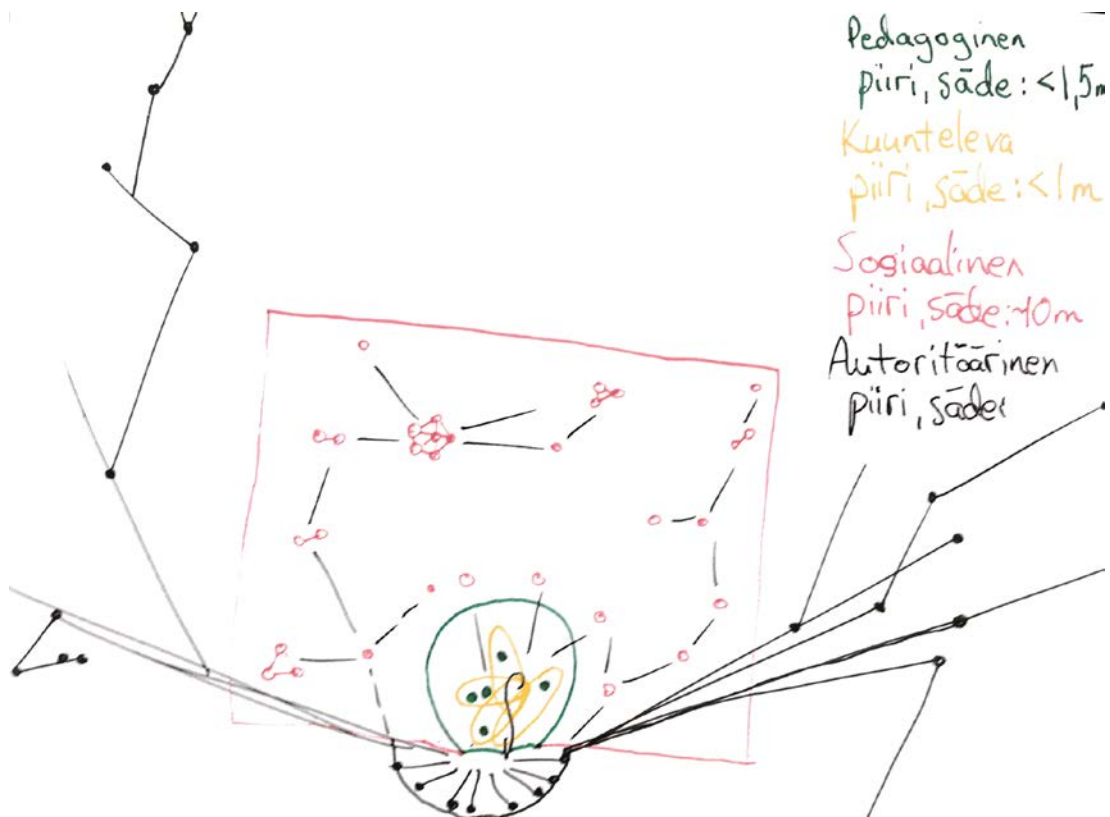 Pedagoginen
piiri, säde: <1,5m
Kuunteleva
piiri, säde: <1m
Sosiaalinen
piiri, säde: ~10m
Autoritäärinen
piiri, säde: